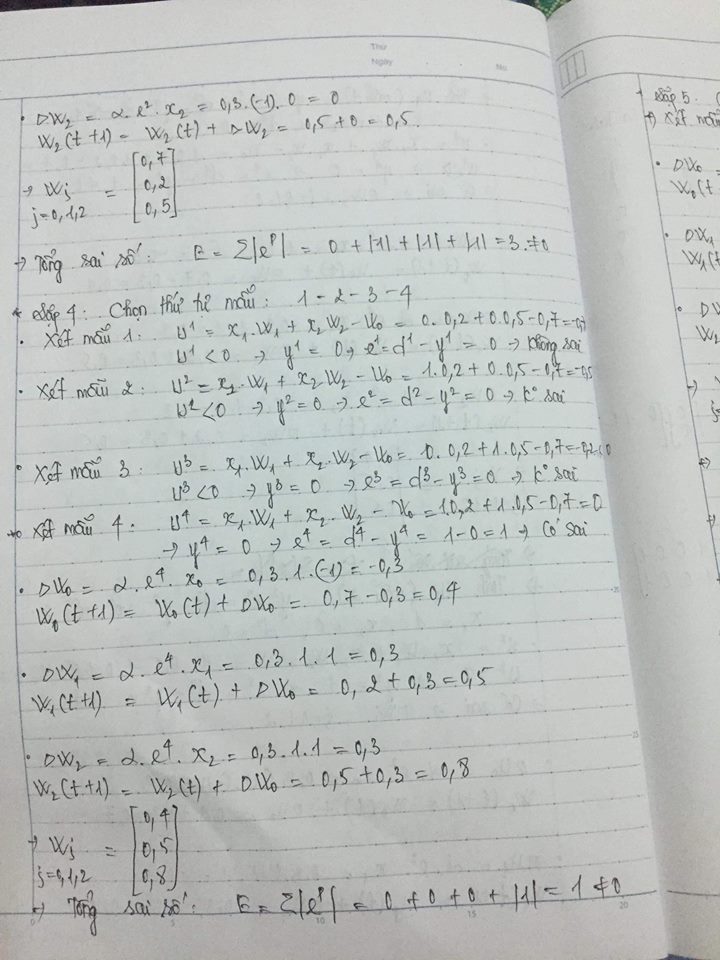 Thứ
Ngày
No.
• DW₂ = α.e².x₂ = 0,3.(-1).0 = 0
W₂(t+1) = W₂(t) + DW₂ = 0,5+0 = 0,5.
→ Wj = [0,7
0,2
0,5]
j=0,1,2
→ Tổng sai số: E = Σ|eᵖ| = 0 + |1| + |1| + |1| = 3 ≠ 0
* Lặp 4: Chọn thứ tự mẫu: 1-2-3-4
• Xét mẫu 1: u¹ = x₁.W₁ + x₂W₂ - W₀ = 0.0,2 + 0.0,5 - 0,7 = -0,7
u¹ < 0 → y¹ = 0 → e¹ = d¹ - y¹ = 0 → Không sai
• Xét mẫu 2: u² = x₁.W₁ + x₂W₂ - W₀ = 1.0,2 + 0.0,5 - 0,7 = -0,5
u² < 0 → y² = 0 → e² = d² - y² = 0 → K° sai
• Xét mẫu 3: u³ = x₁.W₁ + x₂.W₂ - W₀ = 0.0,2 + 1.0,5 - 0,7 = -0,2 < 0
u³ < 0 → y³ = 0 → e³ = d³ - y³ = 0 → K° sai
Xét mẫu 4: u⁴ = x₁.W₁ + x₂.W₂ - W₀ = 1.0,2 + 1.0,5 - 0,7 = 0
→ y⁴ = 0 → e⁴ = d⁴ - y⁴ = 1-0 = 1 → Có sai
• DW₀ = α.e⁴.x₀ = 0,3.1.(-1) = -0,3
W₀(t+1) = W₀(t) + DW₀ = 0,7 - 0,3 = 0,4
• DW₁ = α.e⁴.x₁ = 0,3.1.1 = 0,3
W₁(t+1) = W₁(t) + DW₀ = 0,2 + 0,3 = 0,5
• DW₂ = α.e⁴.x₂ = 0,3.1.1 = 0,3
W₂(t+1) = W₂(t) + DW₀ = 0,5 + 0,3 = 0,8
→ Wj = [0,4
0,5
0,8]
j=0,1,2
→ Tổng sai số: E = Σ|eᵖ| = 0 + 0 + 0 + |1| = 1 ≠ 0
0 5 10 15 20
25
Lặp 5.
→ Xét mẫu
• DW₀ =
W₀(t
• DW₁
W₁(t